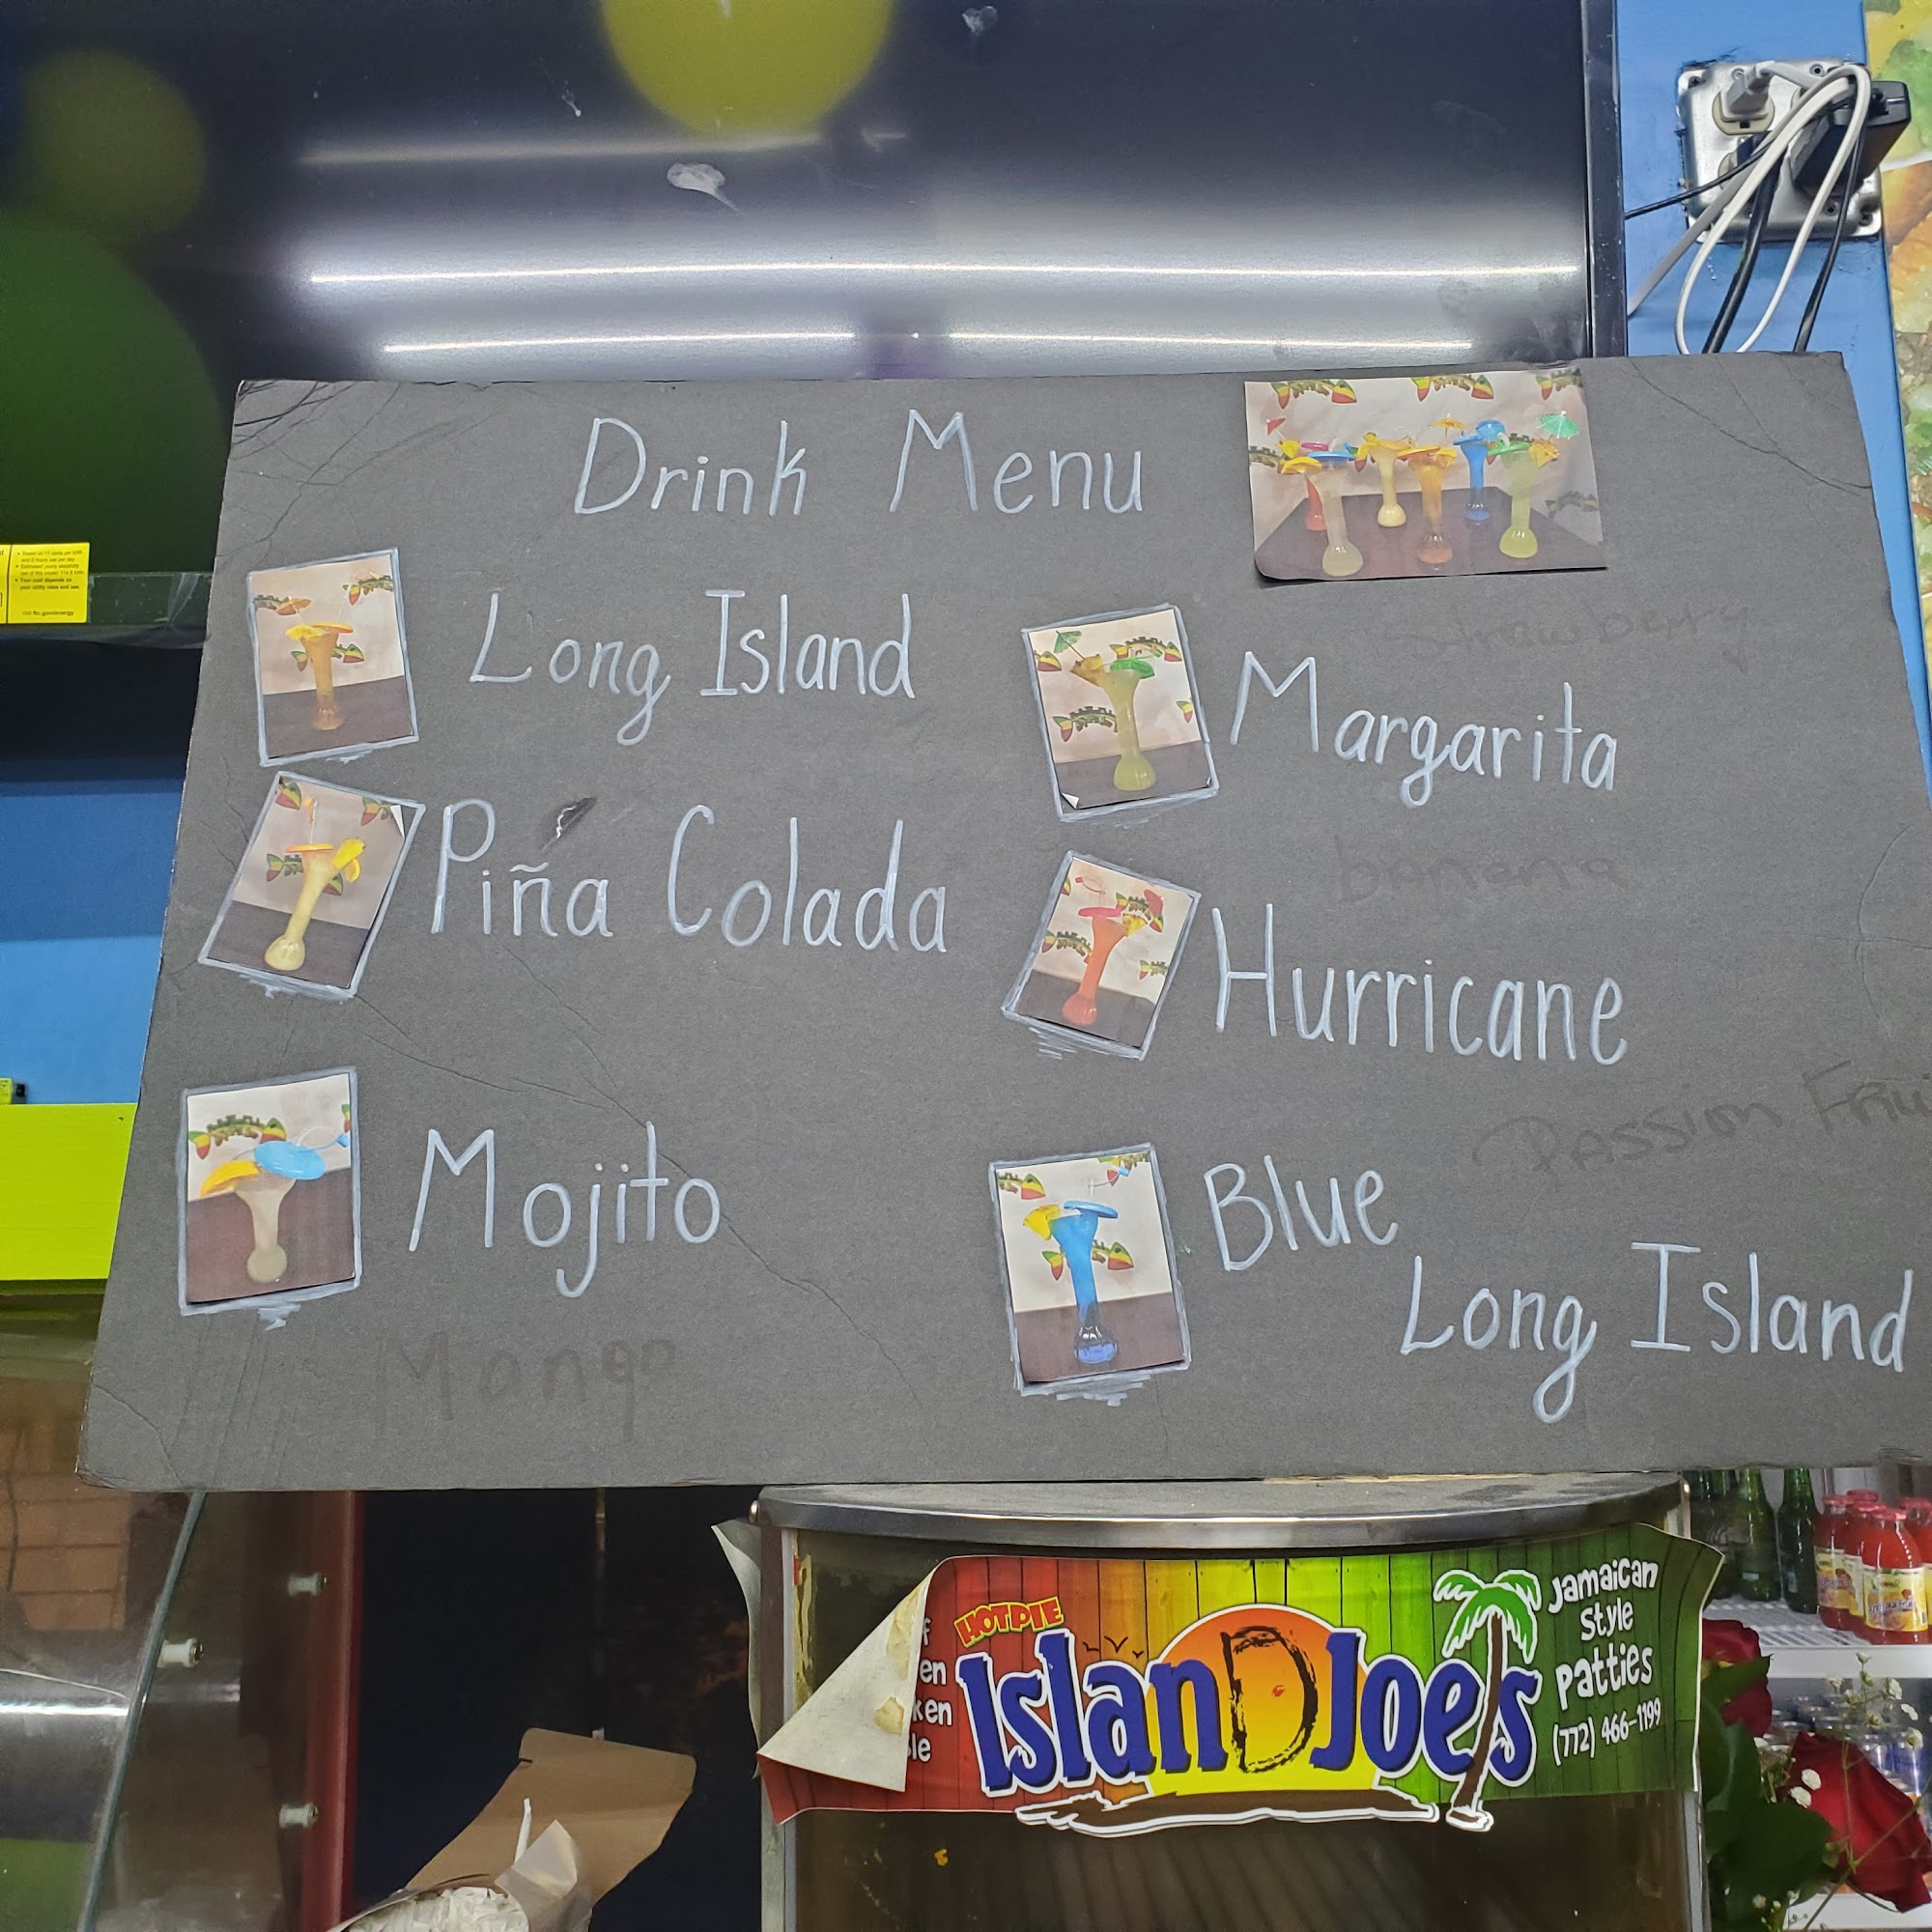 Drink Menu
Long Island
strawberry
Margarita
Piña Colada
banana
Hurricane
Passion
Mojito
Blue
Long Island
Mango
HOT PIE
IslanD Joe's
Jamaican
Style
Patties
(772) 466-1199